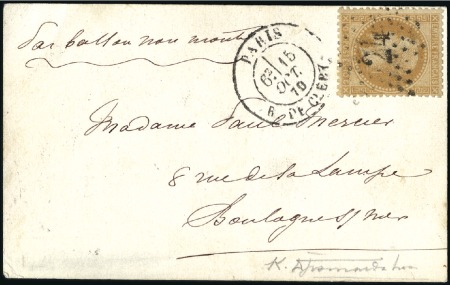 Par ballon non monté
PARIS
6E 15 OCT. 70
R. DE CLERY
24
Madame Paul Mercier
8 rue de la Lampe
Boulogne s/ mer
K.